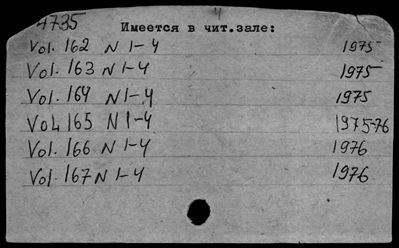 4735
Имеется в чит.зале:
Vol. 162 N 1-4 1975
Vol. 163 N 1-4 1975
Vol. 164 N 1-4 1975
Vol. 165 N 1-4 1975-76
Vol. 166 N 1-4 1976
Vol. 167 N 1-4 1976